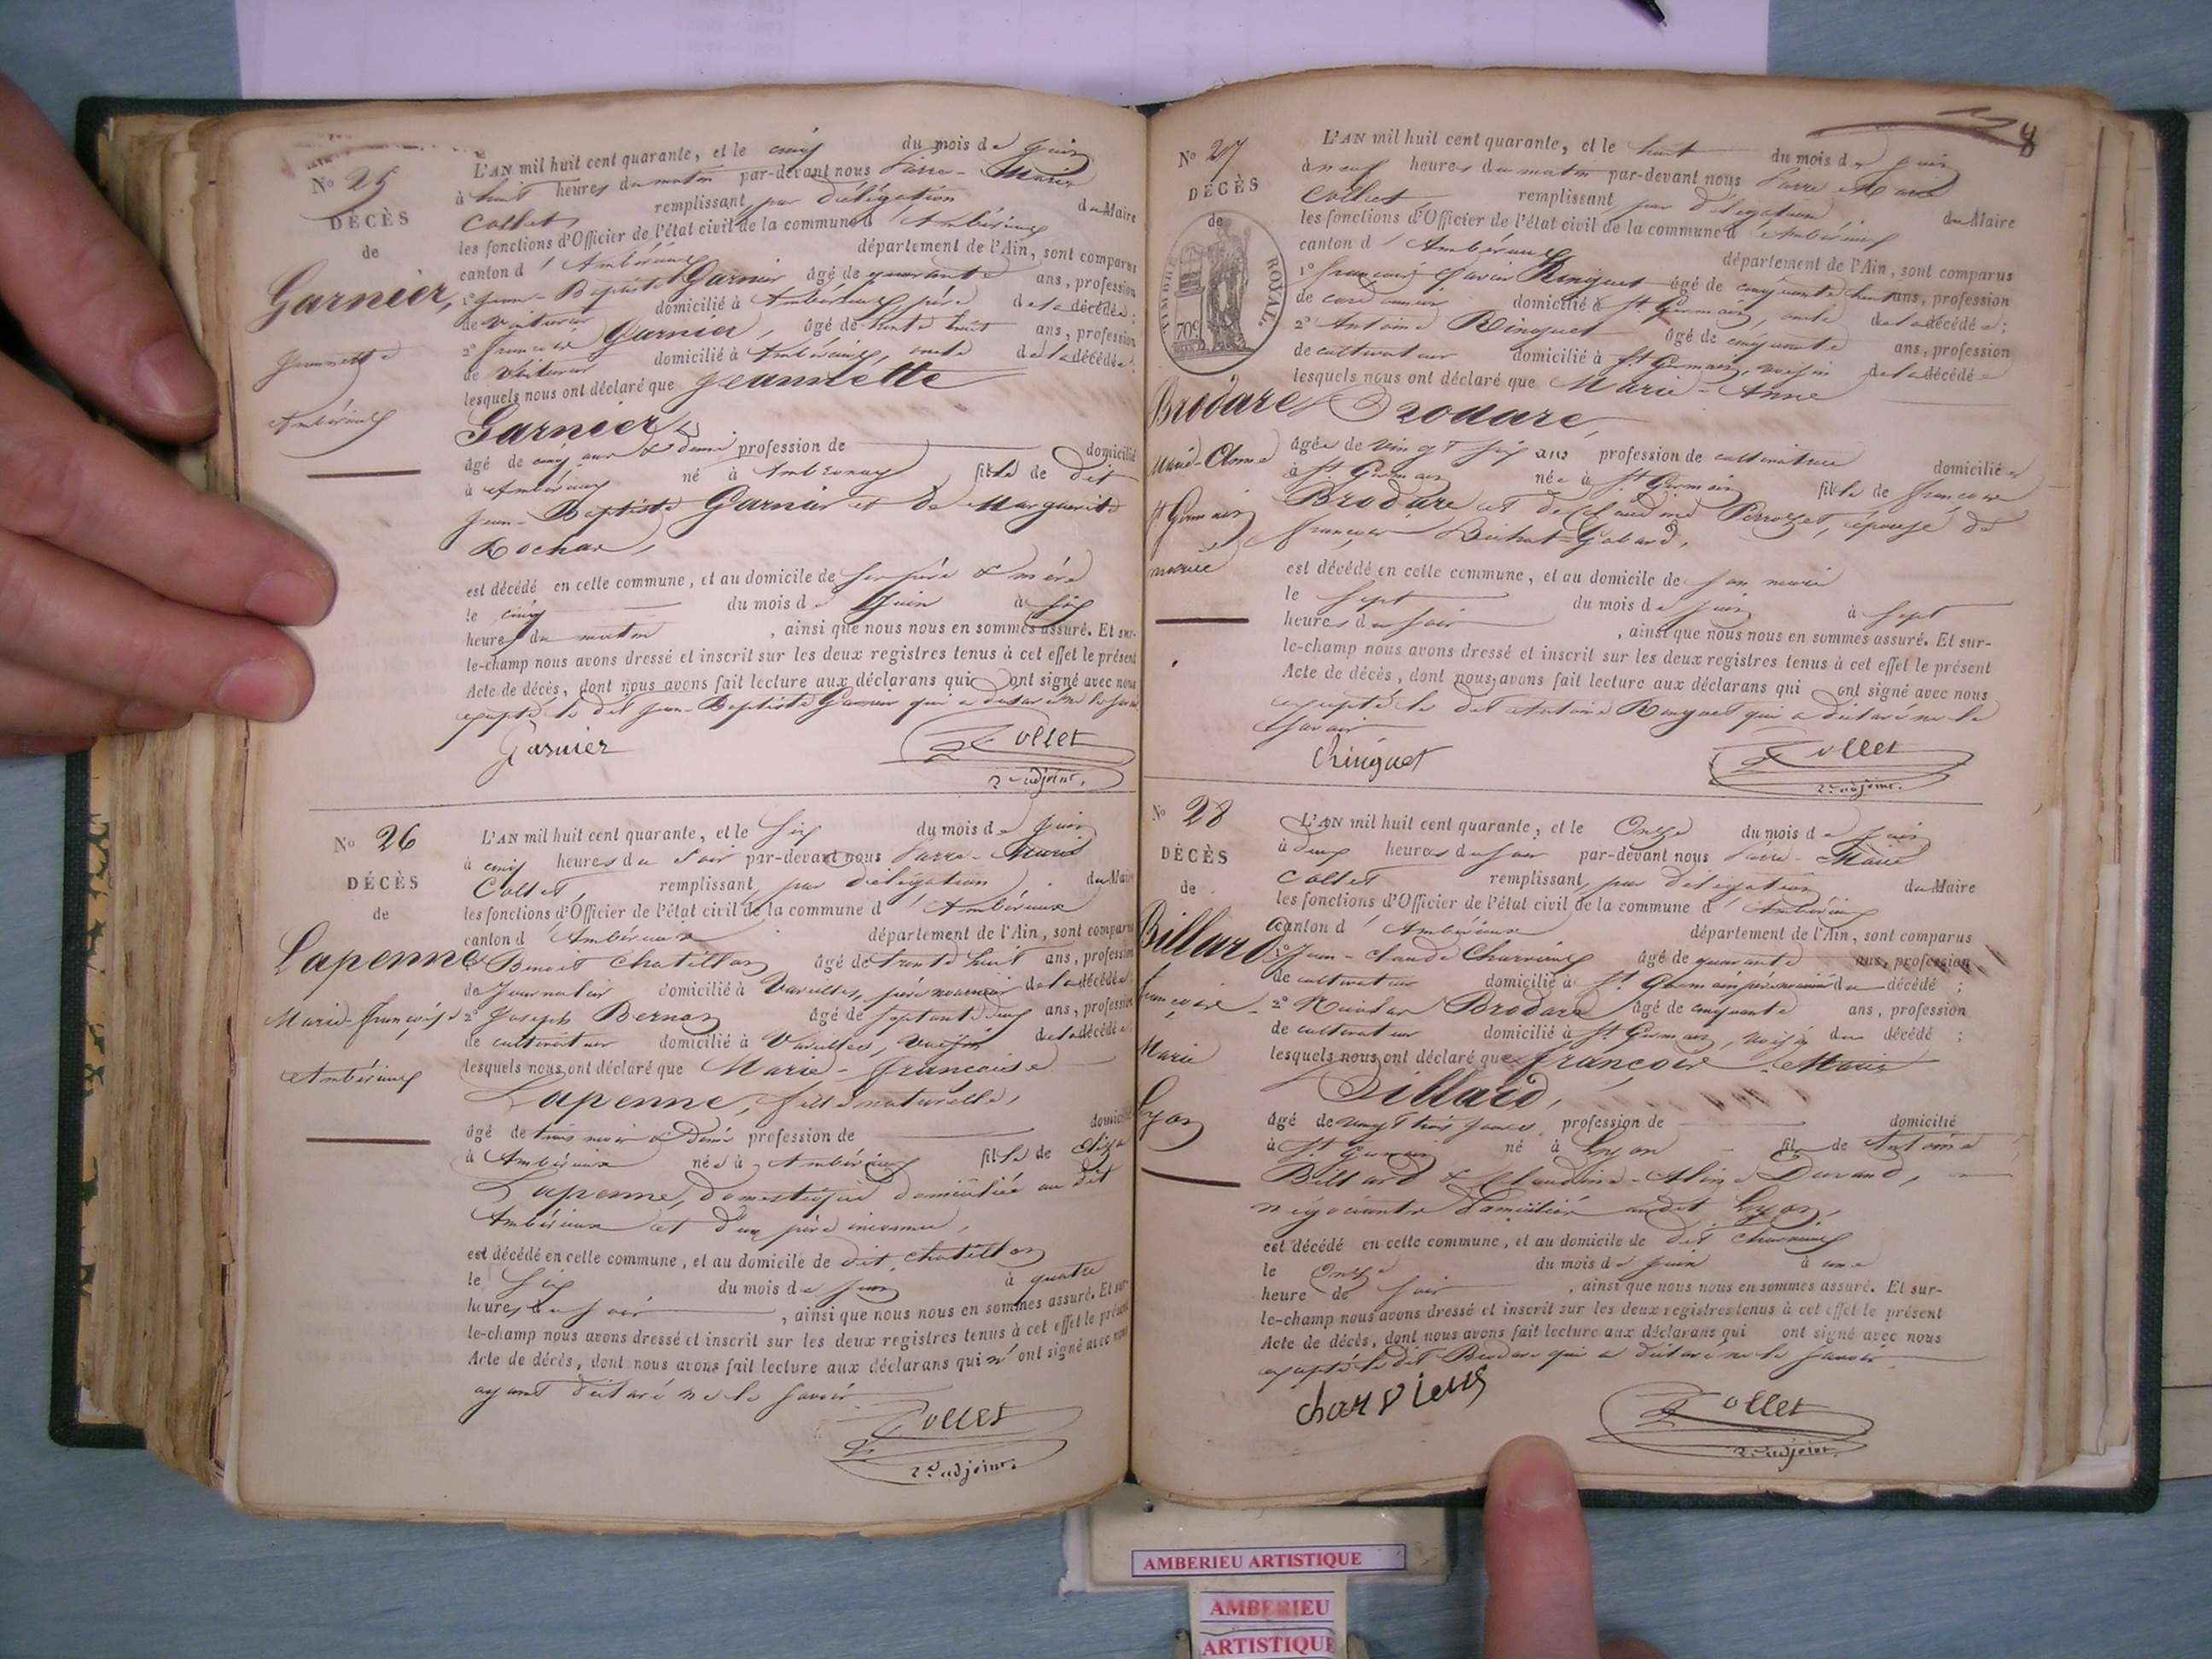 No 25
DÉCÈS
de
Garnier,
Jeannette
Ambérieux
L'AN mil huit cent quarante, et le cinq du mois de Juin
à huit heures du matin par-devant nous Pierre-Marie
Collet, remplissant par délégation du Maire
les fonctions d'Officier de l'état civil de la commune d'Ambérieux
canton d'Ambérieux département de l'Ain, sont comparus
1o Jean-Baptiste Garnier âgé de quarante ans, profession
de voiturier domicilié à Ambérieux, père de la décédée;
2o François Garnier, âgé de trente huit ans, profession
de voiturier domicilié à Ambérieux, oncle de la décédée.
lesquels nous ont déclaré que Jeannette
Garnier,
âgé de cinq ans & demi profession de domicilié
à Ambérieux né à Ambronay fille de dit
Jean-Baptiste Garnier et de Marguerite
Rochas,
est décédé en celle commune, et au domicile de ses père & mère
le cinq du mois de Juin à six
heures du matin, ainsi que nous nous en sommes assuré. Et sur-
le-champ nous avons dressé et inscrit sur les deux registres tenus à cet effet le présent
Acte de décès, dont nous avons fait lecture aux déclarans qui ont signé avec nous
excepté le dit Jean-Baptiste Garnier qui a déclaré ne le savoir
Garnier Collet
2e adjoint.
No 26
DÉCÈS
de
Lapenne
Marie-Françoise
Ambérieux
L'AN mil huit cent quarante, et le six du mois de Juin
à cinq heures du soir par-devant nous Pierre-Marie
Collet, remplissant par délégation du Maire
les fonctions d'Officier de l'état civil de la commune d'Ambérieux
canton d'Ambérieux département de l'Ain, sont comparus
1o Benoit Chatillon âgé de trente huit ans, profession
de Journalier domicilié à Vareilles, père nourricier de la décédée
2o Joseph Bernar âgé de septante deux ans, profession
de cultivateur domicilié à Vareilles, voisin de la décédée
lesquels nous ont déclaré que Marie-Françoise
Lapenne, fille naturelle,
âgé de trois mois & demi profession de domicilié
à Ambérieux née à Ambérieux fille de
Lapenne, domestique domiciliée au dit
Ambérieux et d'un père inconnu,
est décédé en celle commune, et au domicile de dit Chatillon
le six du mois de Juin à quatre
heures du soir, ainsi que nous nous en sommes assuré. Et sur-
le-champ nous avons dressé et inscrit sur les deux registres tenus à cet effet le présent
Acte de décès, dont nous avons fait lecture aux déclarans qui n'ont signé avec nous
ayant déclaré ne le savoir
Collet
2e adjoint.
No 27
DÉCÈS
de
TIMBRE ROYAL.
70c
Brodare
Marie-Anne
St Germain
mariée
L'AN mil huit cent quarante, et le huit du mois de Juin
à neuf heures du matin par-devant nous Pierre Marie
Collet remplissant par délégation du Maire
les fonctions d'Officier de l'état civil de la commune d'Ambérieux
canton d'Ambérieux département de l'Ain, sont comparus
1o François Xavier Ringuet âgé de cinquante huit ans, profession
de cordonnier domicilié à St Germain, oncle de la décédée;
2o Antoine Ringuet âgé de cinquante ans, profession
de cultivateur domicilié à St Germain, voisin de la décédée
lesquels nous ont déclaré que Marie-Anne
Brodare,
âgée de vingt six ans profession de cultivatrice domiciliée
à St Germain née à St Germain fille de François
Brodare et de Claudine Perrozet, épouse de
François Bichat-Gobard,
est décédé en celle commune, et au domicile de son mari
le sept du mois de Juin à sept
heures du soir, ainsi que nous nous en sommes assuré. Et sur-
le-champ nous avons dressé et inscrit sur les deux registres tenus à cet effet le présent
Acte de décès, dont nous avons fait lecture aux déclarans qui ont signé avec nous
excepté le dit Antoine Ringuet qui a déclaré ne le
savoir
Ringuet Collet
2e adjoint.
No 28
DÉCÈS
de
Billard
François
Marie
Lyon
L'AN mil huit cent quarante, et le Onze du mois de Juin
à deux heures du soir par-devant nous Pierre-Marie
Collet remplissant par délégation du Maire
les fonctions d'Officier de l'état civil de la commune d'Ambérieux
canton d'Ambérieux département de l'Ain, sont comparus
1o Jean-Claude Charvieux âgé de quarante ans, profession
de cultivateur domicilié à St Germain père nourricier du décédé;
2o Nicolas Brodare âgé de cinquante ans, profession
de cultivateur domicilié à St Germain, voisin du décédé;
lesquels nous ont déclaré que François-Marie
Billard,
âgé de vingt trois jours profession de domicilié
à St Germain né à Lyon fils de Antoine
Billard & Claudine-Aline Durand,
négociants domiciliés audit Lyon,
est décédé en celle commune, et au domicile de dit Charvieux
le Onze du mois de Juin à une
heure de soir, ainsi que nous nous en sommes assuré. Et sur-
le-champ nous avons dressé et inscrit sur les deux registres tenus à cet effet le présent
Acte de décès, dont nous avons fait lecture aux déclarans qui ont signé avec nous
excepté le dit Brodare qui a déclaré ne le savoir
charvieux Collet
2e adjoint.
AMBERIEU ARTISTIQUE
AMBERIEU
ARTISTIQUE